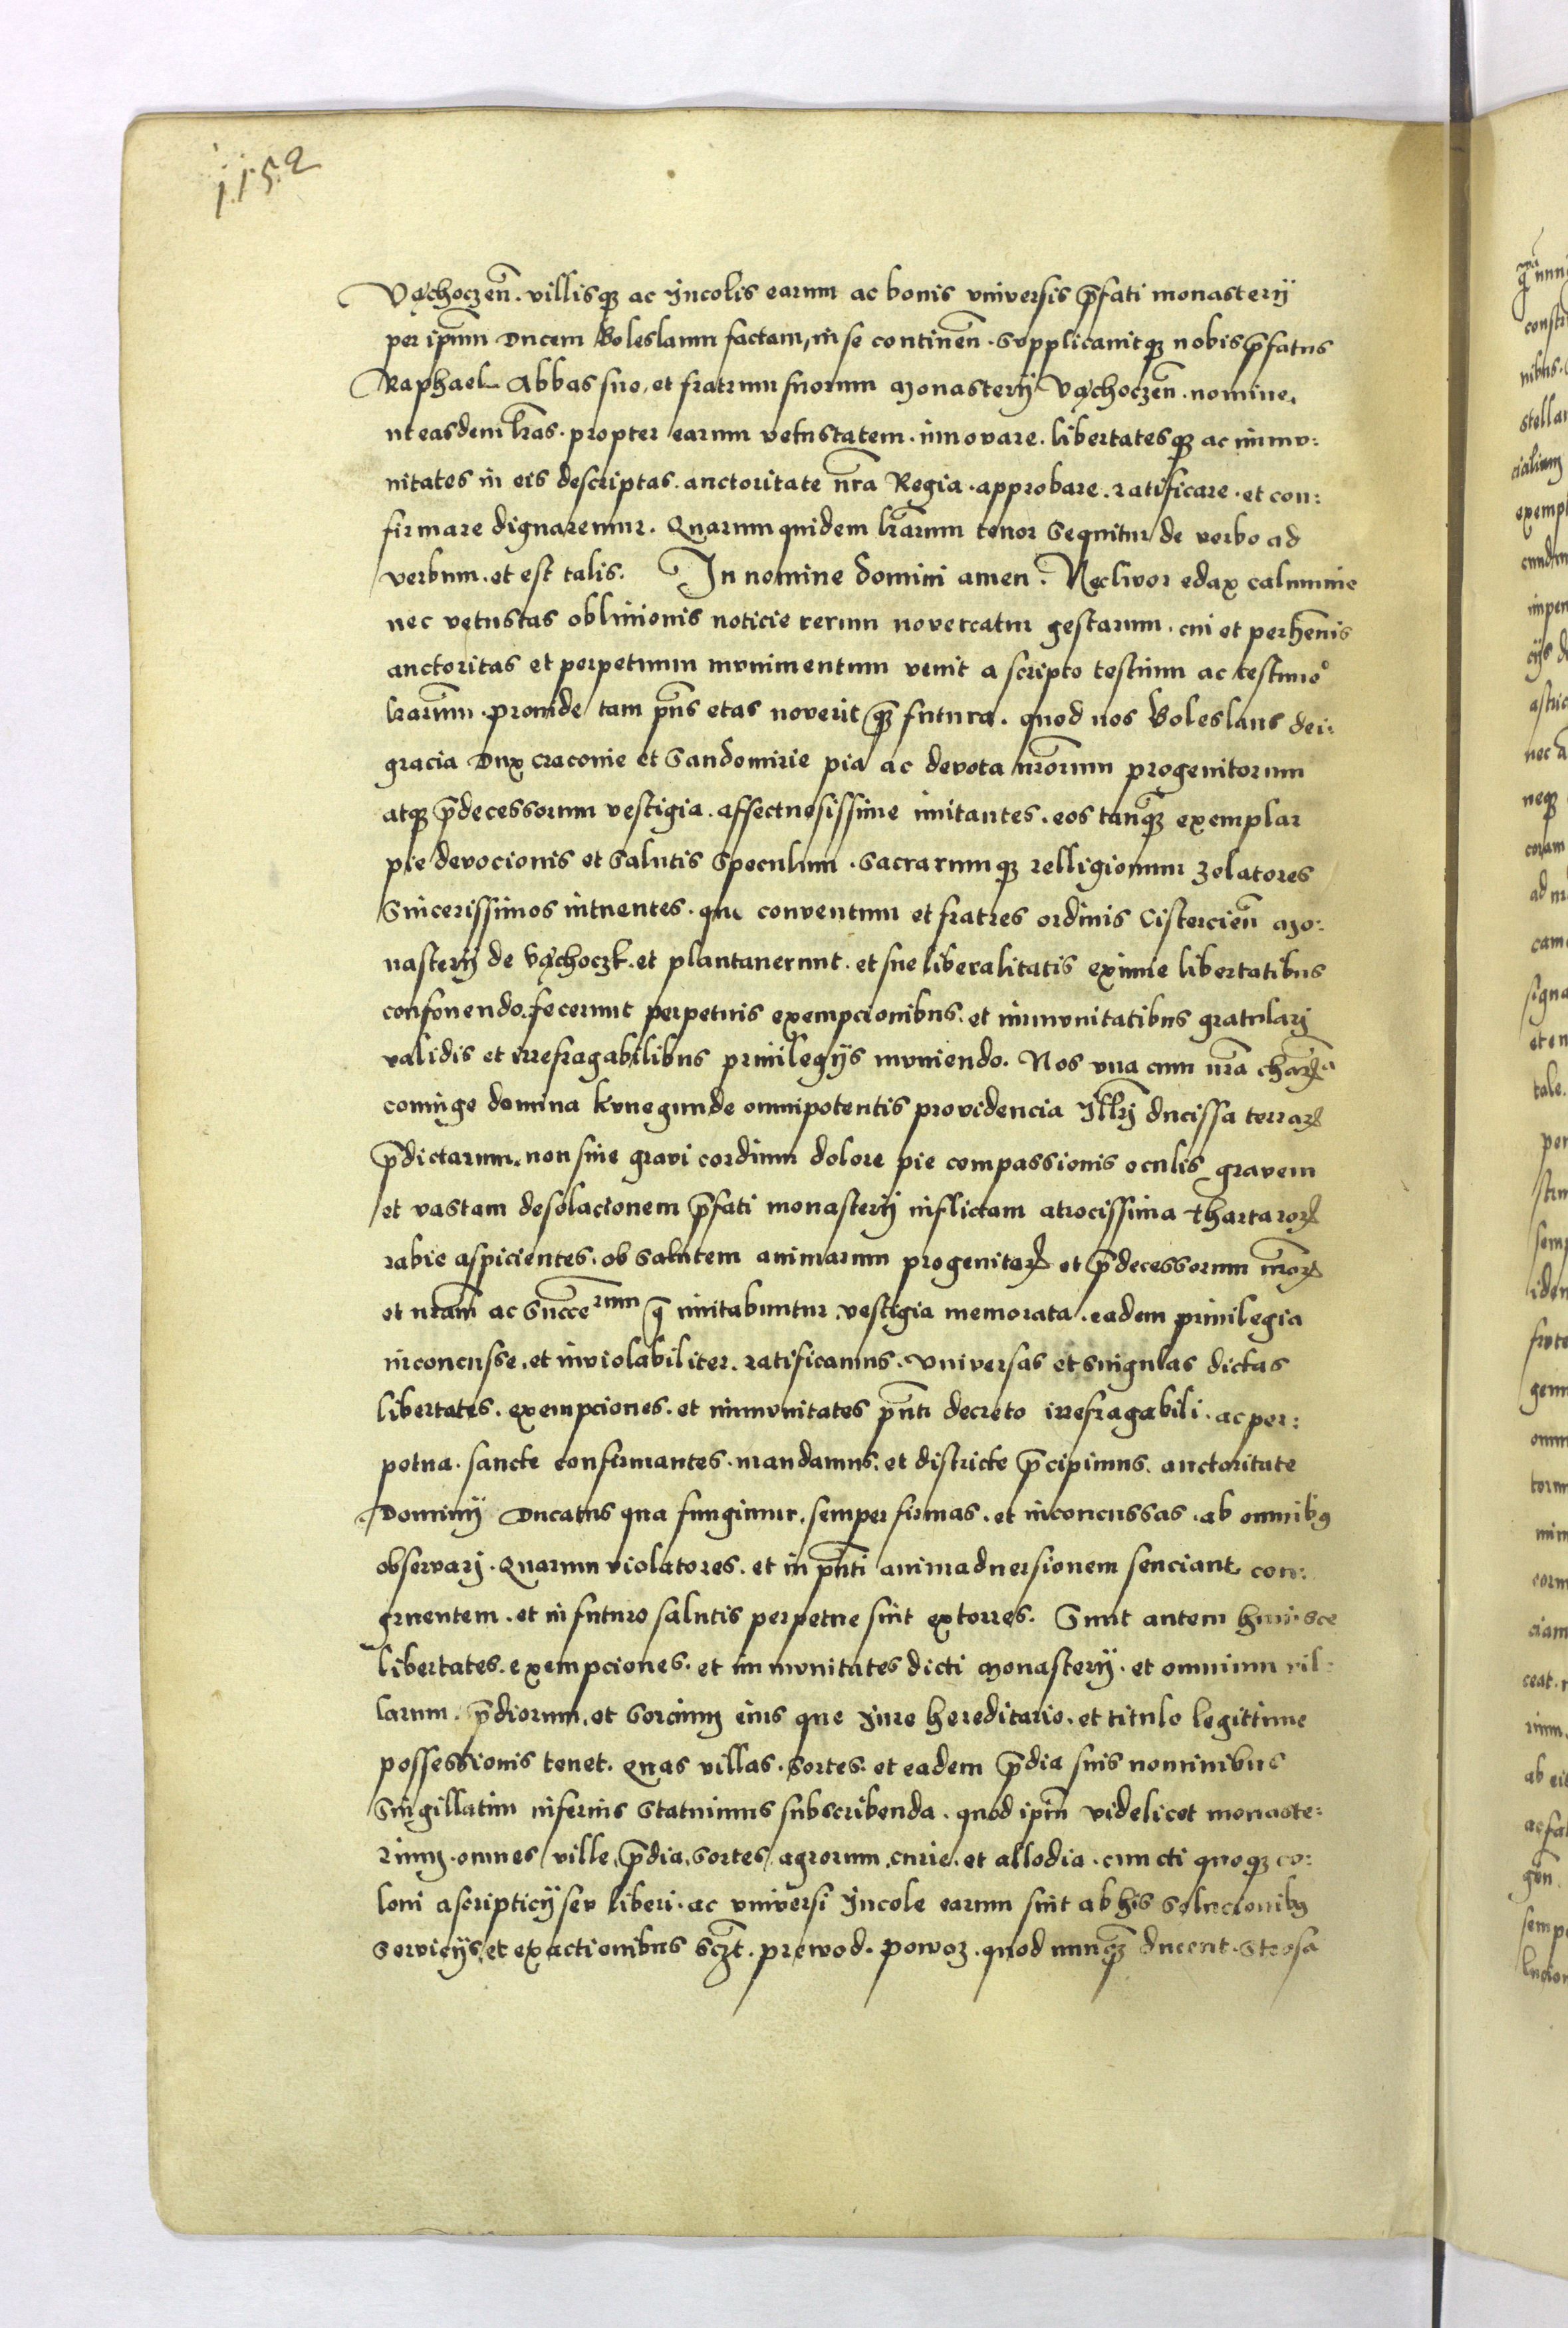 1152
Vąchoczeñ. villisqз ac Incolis earum ac bonis vniversis p̄fati monasterij
per ipm̄ Ducem Boleslaum factam, in se continen̄. Supplicavitqз nobis p̄fatus
Raphael Abbas suo, et fratrum suorum Monasterij Vąchoczen̄. nomine.
ut easdem lr̄as. propter earum vetustatem. innovare. libertatesqз ac immu:
nitates in eis descriptas. auctoritate nr̄a Regia. approbare. ratificare. et con:
firmare dignaremur. Quarum quidem lr̄arum tenor sequitur de verbo ad
verbum. et est talis. In nomine domini amen. Nec livor edax calumnie
nec vetustas oblivionis noticie rerum novercatur gestarum. cui et perhen̄is
auctoritas et perpetuum munimentum venit a scripto testium ac testimo°
lr̄arum. proinde tam pn̄s etas noverit qз̄ futura. quod nos Boleslaus dei:
gracia Dux cracovie et Sandomirie pia ac devota nr̄orum progenitorum
atqз p̄decessorum vestigia. affectuosissime imitantes. eos tanqз̄ exemplar
pie devocionis et salutis speculum. sacrarumqз relligionum zelatores
Sincerissimos intuentes. qui conventum et fratres ordinis Cistercien̄ Mo:
nasterij de Vąchoczk. et plantaverunt. et sue liberalitatis eximie libertatibus
confovendo. fecerunt perpetuis exempcionibus. et immunitatibus gratulari
validis et irrefragabilibus privilegijs muniendo. Nos vna cum nr̄a char̄ꝝa
coniuge domina kunegunde omnipotentis providencia Illrī ducissa terraꝝ
p̄dictarum. non sine gravi cordium dolore pie compassionis oculis gravem
et vastam desolacionem p̄fati monasterij inflictam atrocissima Thartaroꝝ
rabie aspicientes. ob salutem animarum progenitoꝝ et p̄decessorum nr̄oꝝ
et nr̄am ac Succ̄erum q̄ imitabuntur. vestigia memorata. eadem privilegia
inconcusse. et inviolabiliter. ratificamus. vniversas et singulas dictas
libertates. exempciones. et immunitates pn̄ti decreto irrefragabili. ac per:
petua. sancte confirmantes. mandamus. et districte p̄cipimus. auctoritate
Dominij Ducatus qua fungimur. semper firmas. et inconcussas. ab omnibꝰ
observari. Quarum violatores. et in pn̄ti animadversionem senciant con:
gruentem. et in futuro salutis perpetue sint extorres. Sunt autem huiusce
libertates. exempciones. et immunitates dicti Monasterij. et omnium vil:
larum. p̄diorum, et sorcium eius que Iure hereditario. et titulo legittime
possessionis tenet. Quas villas. sortes. et eadem p̄dia suis nominibus
Singillatim inferius statuimus subscribenda. quod ipm̄ videlicet monaste:
rium. omnes ville, p̄dia, sortes, agrorum, curie. et allodia. cuncti quoqз co:
loni ascripticij seu liberi. ac vniversi Incole earum sint ab his solucionibꝰ
Servicijs, et exactionibus scz̄t. prewod. powoz. quod nunqз̄ ducent. strosa